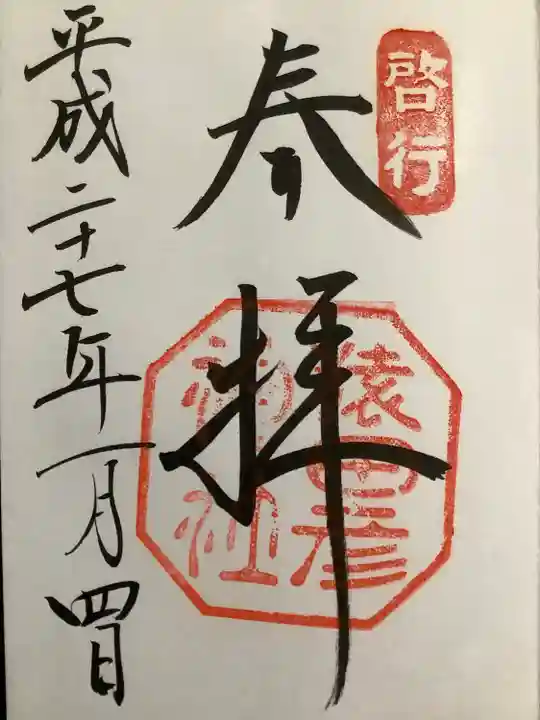 啓行
奉拝
猿田彦
神社
平成二十七年一月四日